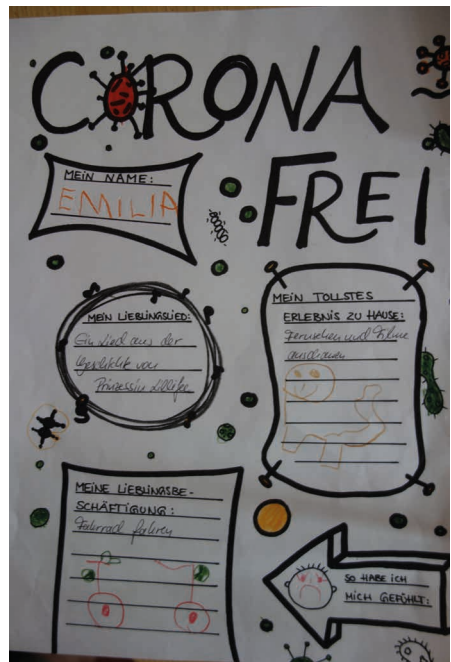 CORONA
FREI
MEIN NAME:
EMILIA
MEIN LIEBLINGSLIED:
Ein Lied aus der
Geschichte von
Prinzessin Lillifee
MEIN TOLLSTES
ERLEBNIS ZU HAUSE:
Fernsehen und Filme
anschauen
MEINE LIEBLINGSBE-
SCHÄFTIGUNG:
Fahrrad fahren
SO HABE ICH
MICH GEFÜHLT: